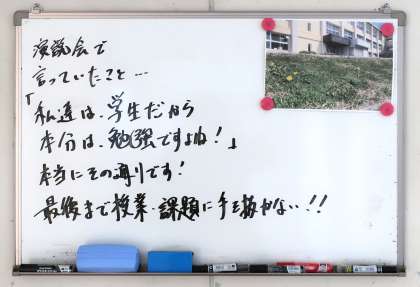 演説会で
言っていたこと…
「私達は、学生だから
本分は、勉強ですよね！」
本当にその通りです！
最後まで授業・課題に手を抜かない!!